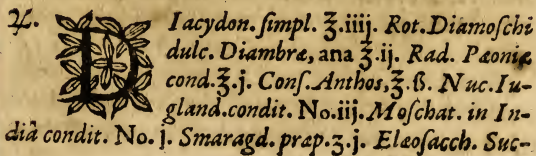 ♃. DIacydon. ſimpl. ℥.iiij. Rot. Diamoſchi
dulc. Diambræ, ana ℥.ij. Rad. Pæoniæ
cond. ℥.j. Conſ. Anthos, ℥.ß. Nuc. Iu-
gland. condit. No.iij. Moſchat. in In-
diâ condit. No. j. Smaragd. præp. ʒ.j. Elæoſacch. Suc-